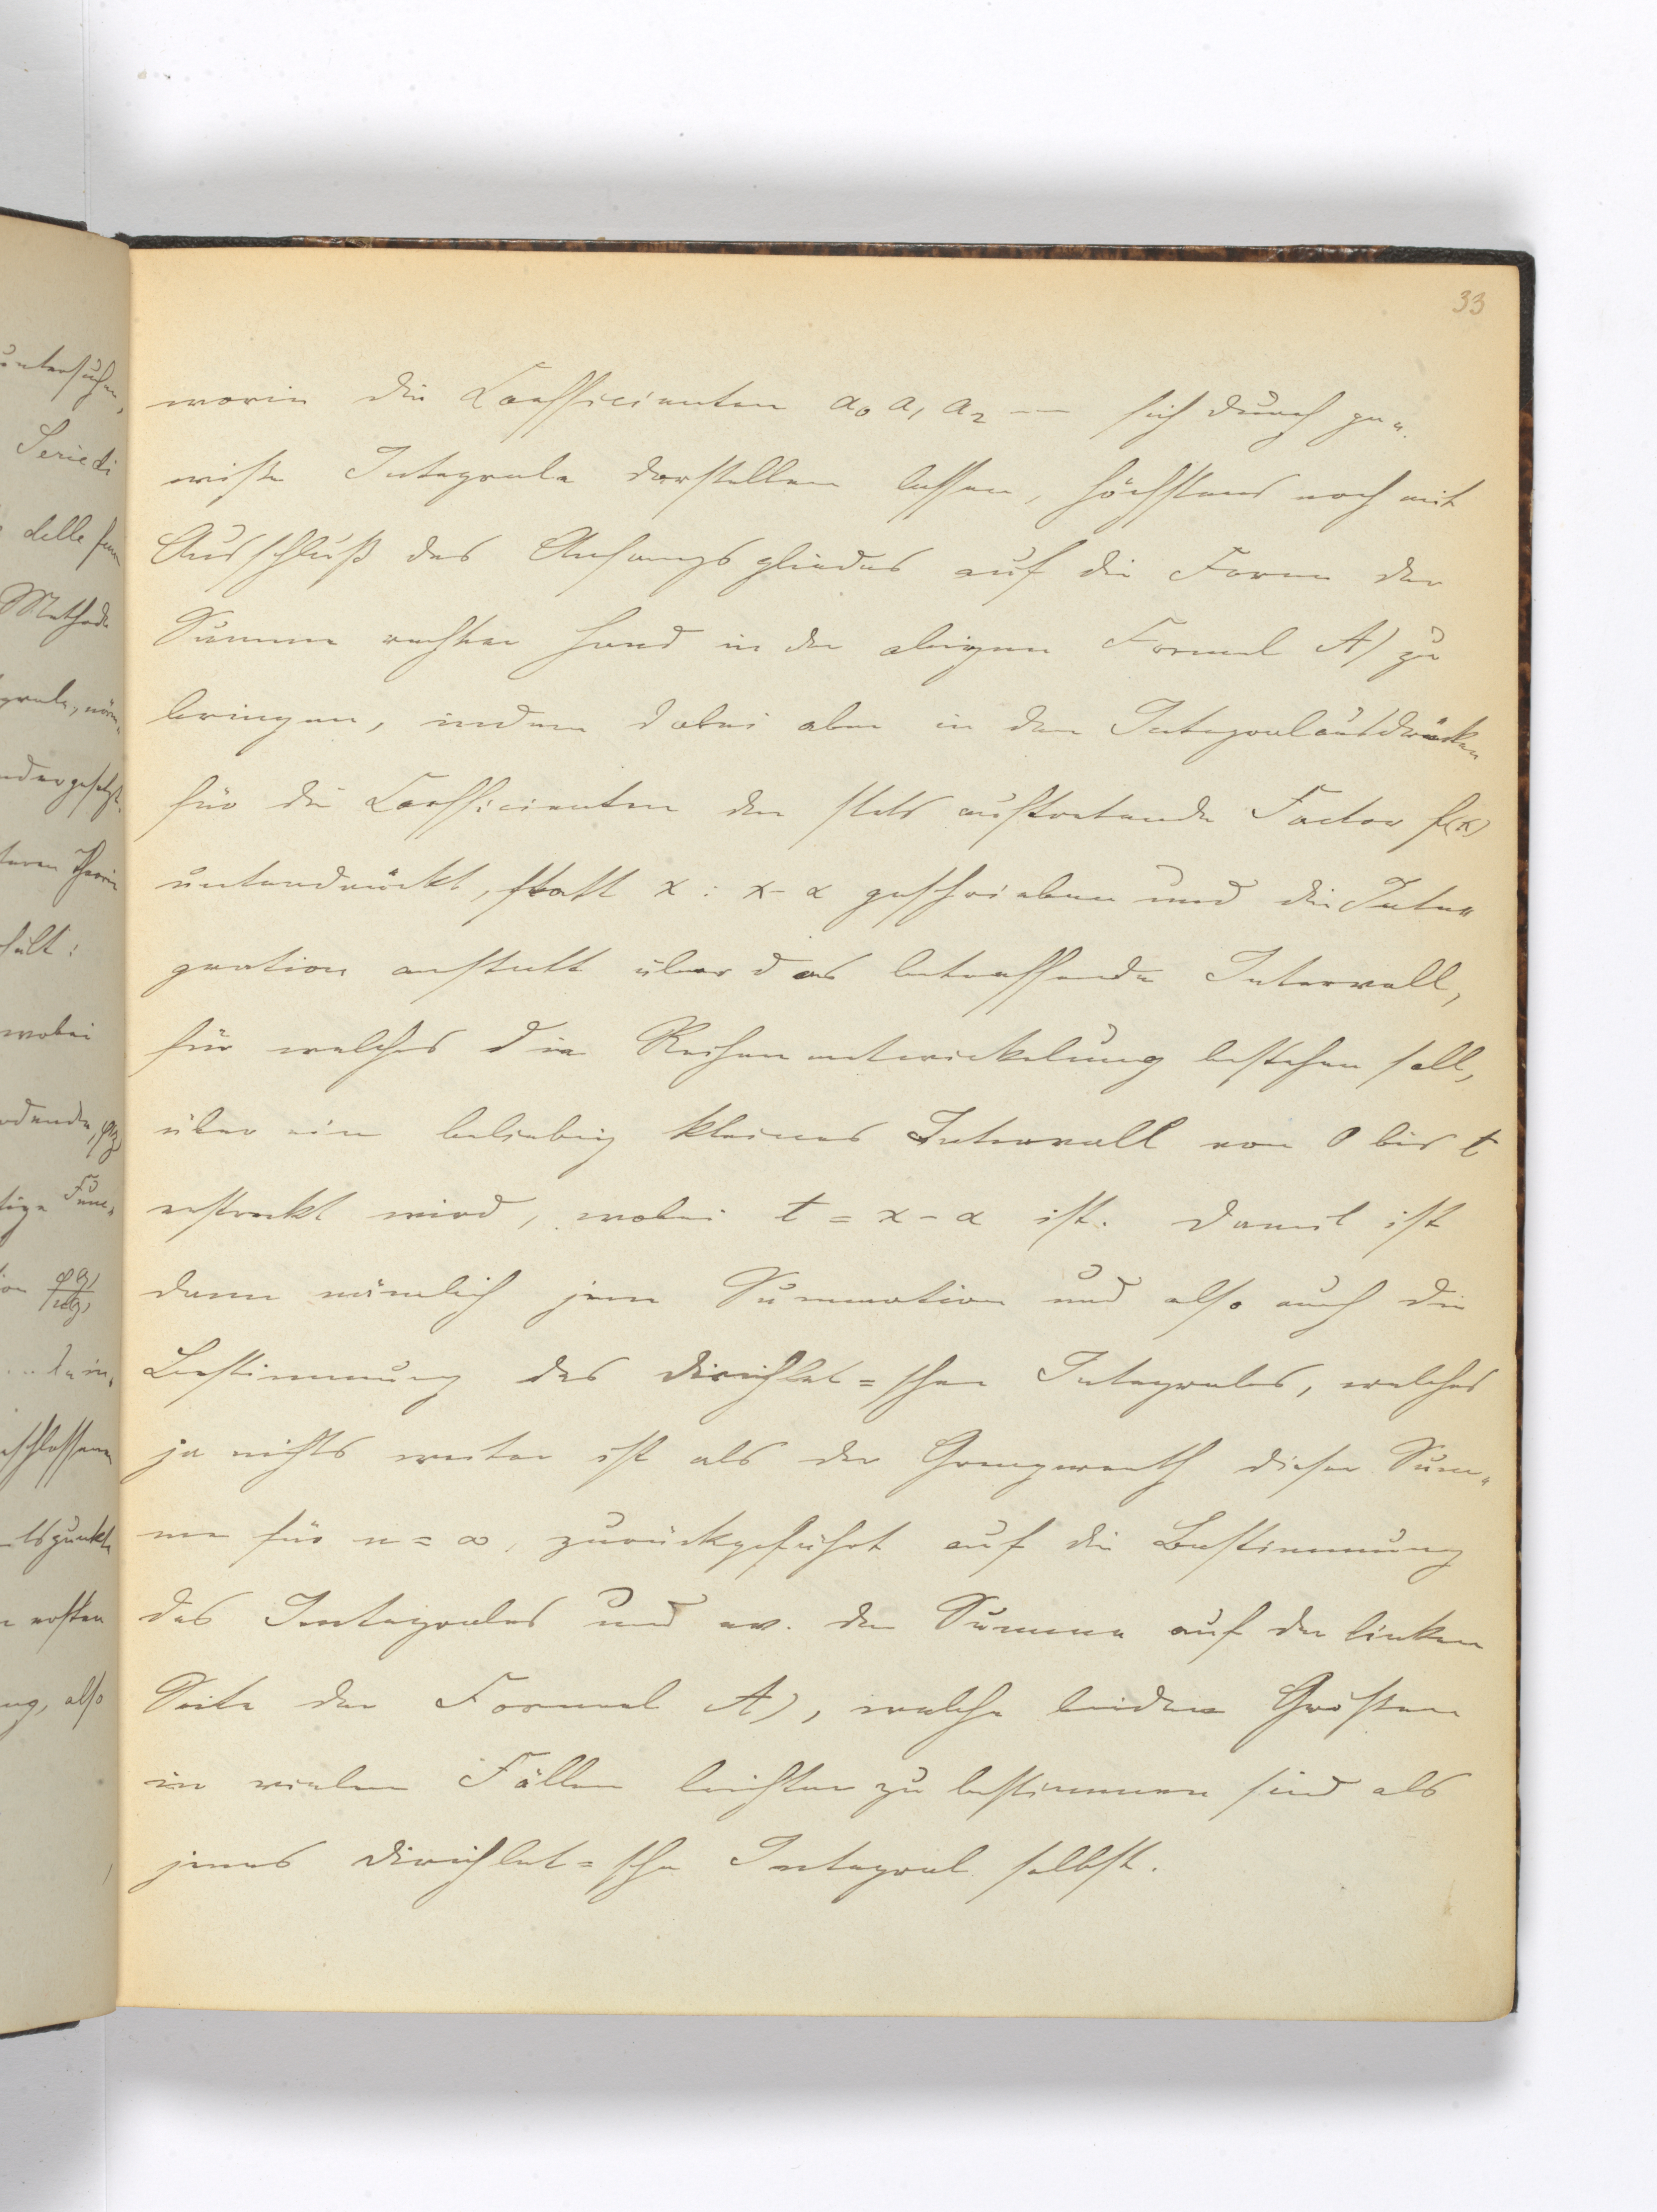 33
worin die Coefficienten a₀ a₁ a₂ — sich durch ge„
wisse Integrale darstellen lassen, höchstens noch mit
Ausschluß des Anfangsgliedes auf die Form der
Summe rechter Hand in der obigen Formel A) zu
bringen, indem dabei aber in den Integralausdrücken
für die Coefficienten der stets auftretende Factor f(x)
unterdrückt, statt x : x - α geschrieben und die Inte„
gration anstatt über das betreffende Intervall,
für welches die Reihenentwickelung bestehen soll,
über ein beliebig kleines Intervall von 0 bis t
erstreckt wird, wobei t = x - α ist. Damit ist
dann nämlich jene Summation und also auch die
Bestimmung des Dirichlet=schen Integrales, welches
ja nichts weiter ist als der Grenzwerth dieser Sum„
me für n = ∞, zurückgeführt auf die Bestimmung
des Integrales und ev. der Summe auf der linken
Seite der Formel A), welche beiden Größen
in vielen Fällen leichter zu bestimmen sind als
jenes Dirichlet=sche Integral selbst.
untersuchen,
Serie di
delle fun
Methode
wobei
ersten